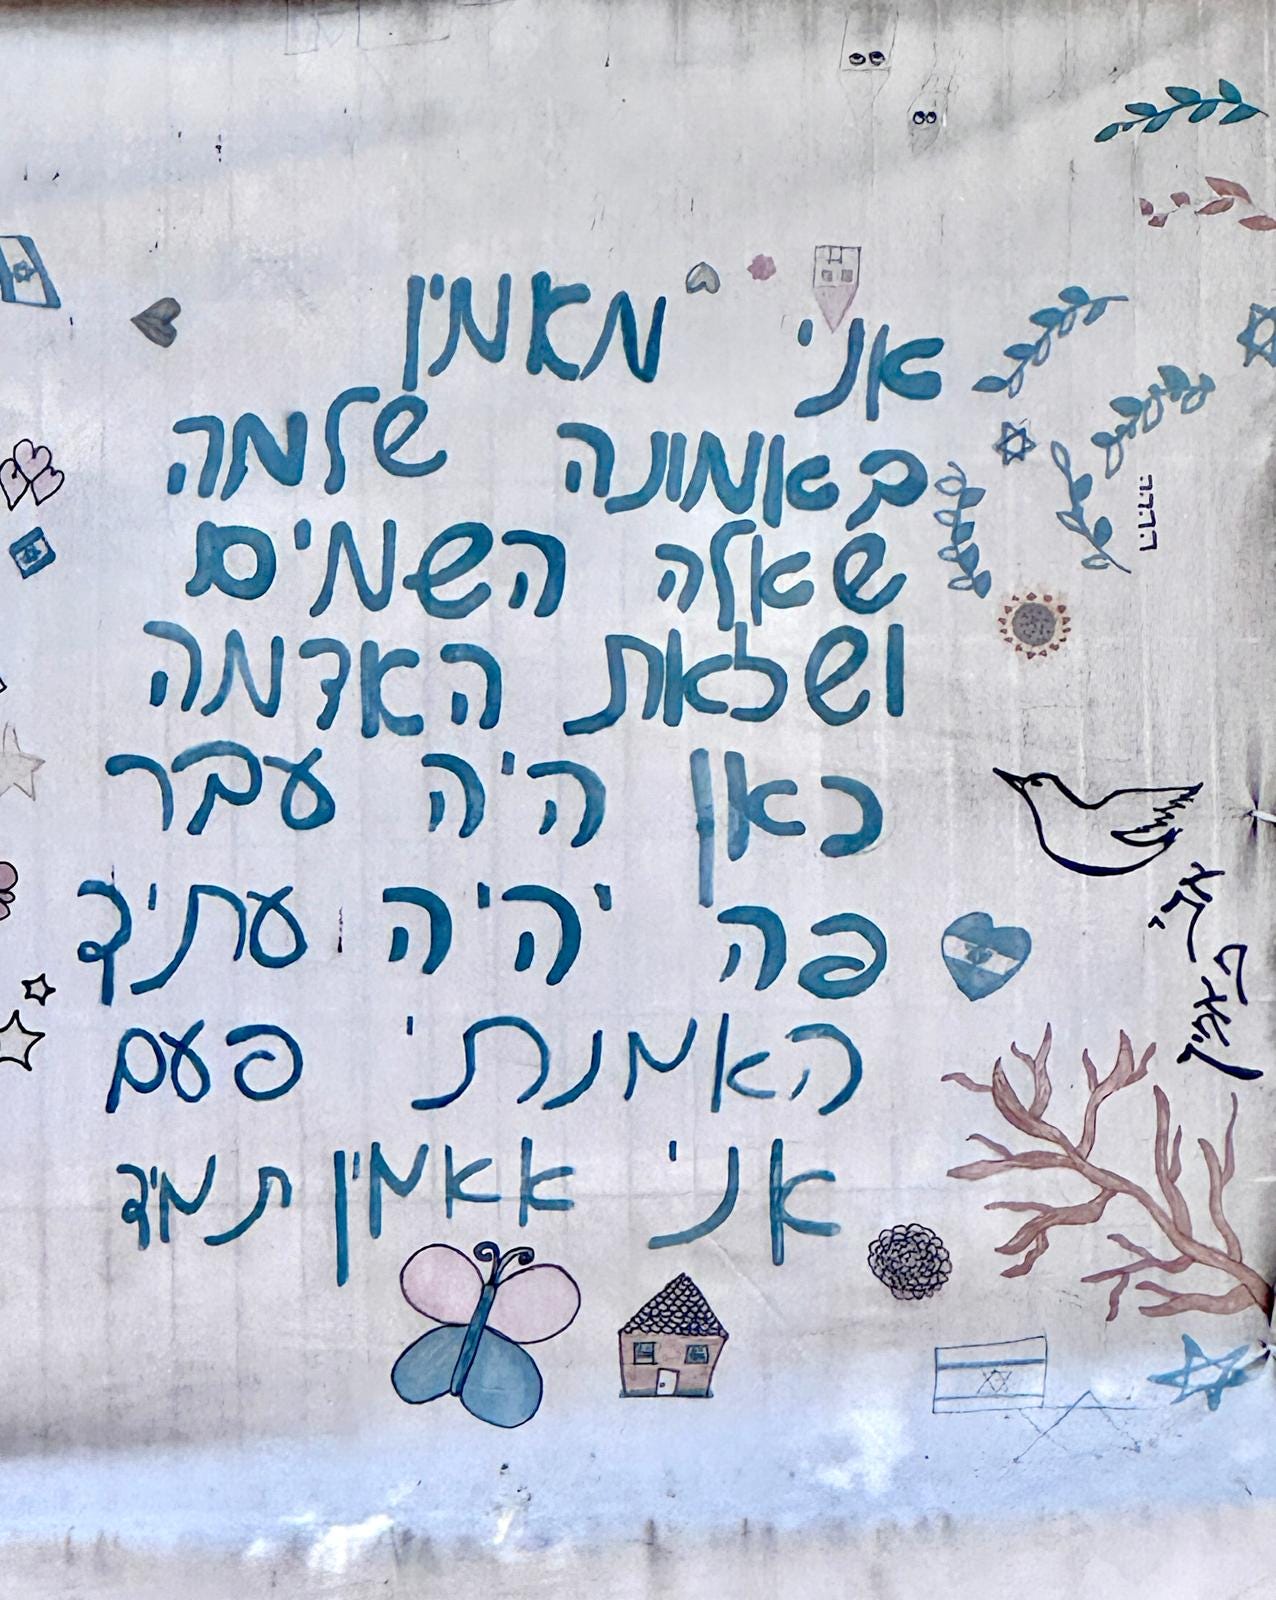 אני מאמין
באמונה שלמה
שאלה השמים
ושזאת האדמה
כאן היה עבר
פה יהיה עתיד
האמנתי פעם
אני אאמין תמיד